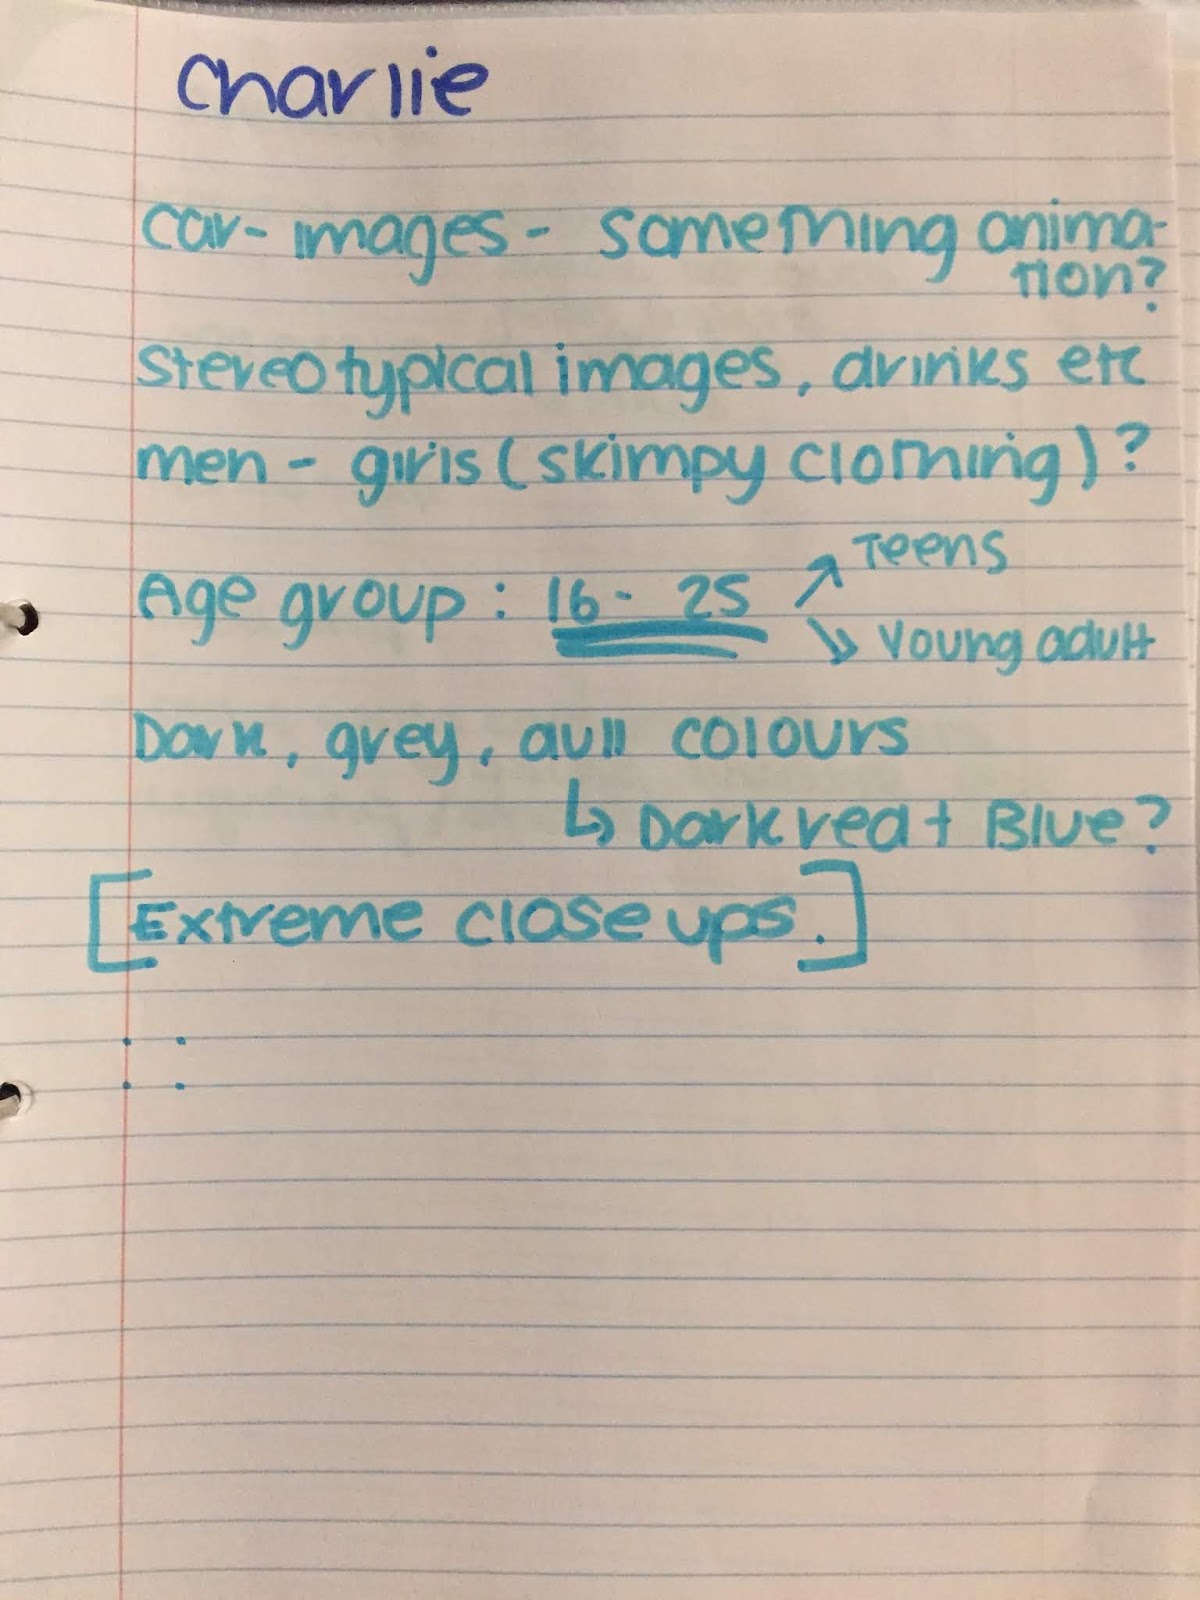 Charlie
Car - images - something anima-
tion?
Stereotypical images, drinks etc
men - girls (skimpy clothing)?
Teens
Age group: 16 - 25
Young adult
Dark, grey, dull colours
Dark red + Blue?
[Extreme close ups.]